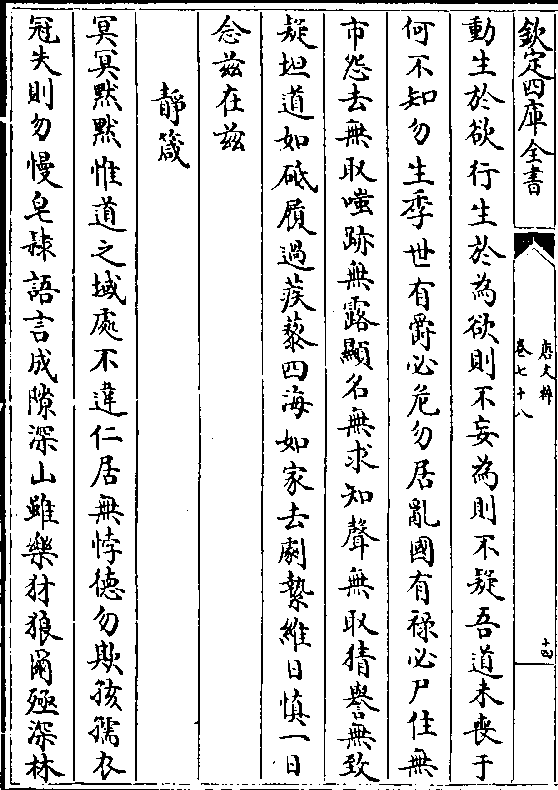 欽定四庫全書
唐文粹
卷七十八
十四
動生於欲行生於為欲則不妄為則不疑吾道未喪于
何不知勿生季世有爵必危勿居亂國有祿必尸住無
市怨去無取嗤跡無露顯名無求知聲無取猜譽無致
疑坦道如砥履過蒺藜四海如家去劇縶維日慎一日
念兹在兹
靜箴
冥冥默默惟道之域處不違仁居無悖德勿欺孩孺衣
冠失則勿慢皂隸語言成隙深山雖樂豺狼爾殛深林